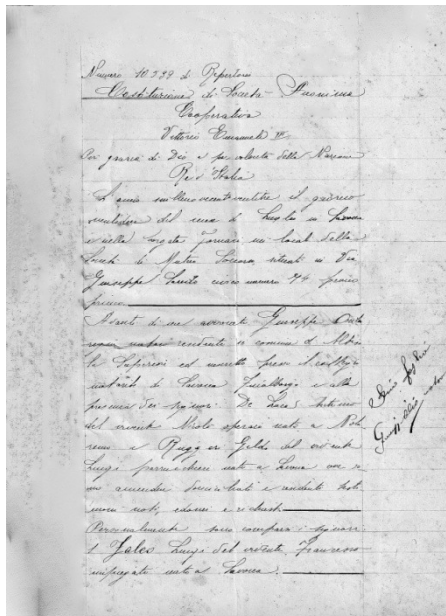 Numero 10.339 di Repertorio
Costituzione di Società Anonima
Cooperativa
Vittorio Emanuele III
Per grazia di Dio e per volontà della Nazione
Re d'Italia
L'anno millenovecentoventitre il giorno
del mese di Luglio in Savona
e nella borgata Fornaci nei locali della
Società di Mutuo Soccorso, situati in Via
Giuseppe Saredo civico numero 74 piano
primo
Avanti di me avvocato Giuseppe
notaro residente in comune d'Albis
sola Superiore ed inscritto presso il collegio
notarile di Savona e alla
presenza dei signori: De
del vivente Nicolò operaio nato a Noli
e Ruggeri Gildo del vivente
Luigi parrucchiere nato a Savona ove
amendue domiciliati e residenti testi
moni noti, idonei e richiesti
Personalmente sono comparsi i signori:
1 Jales Luigi del vivente Francesco
impiegato nato a Savona.